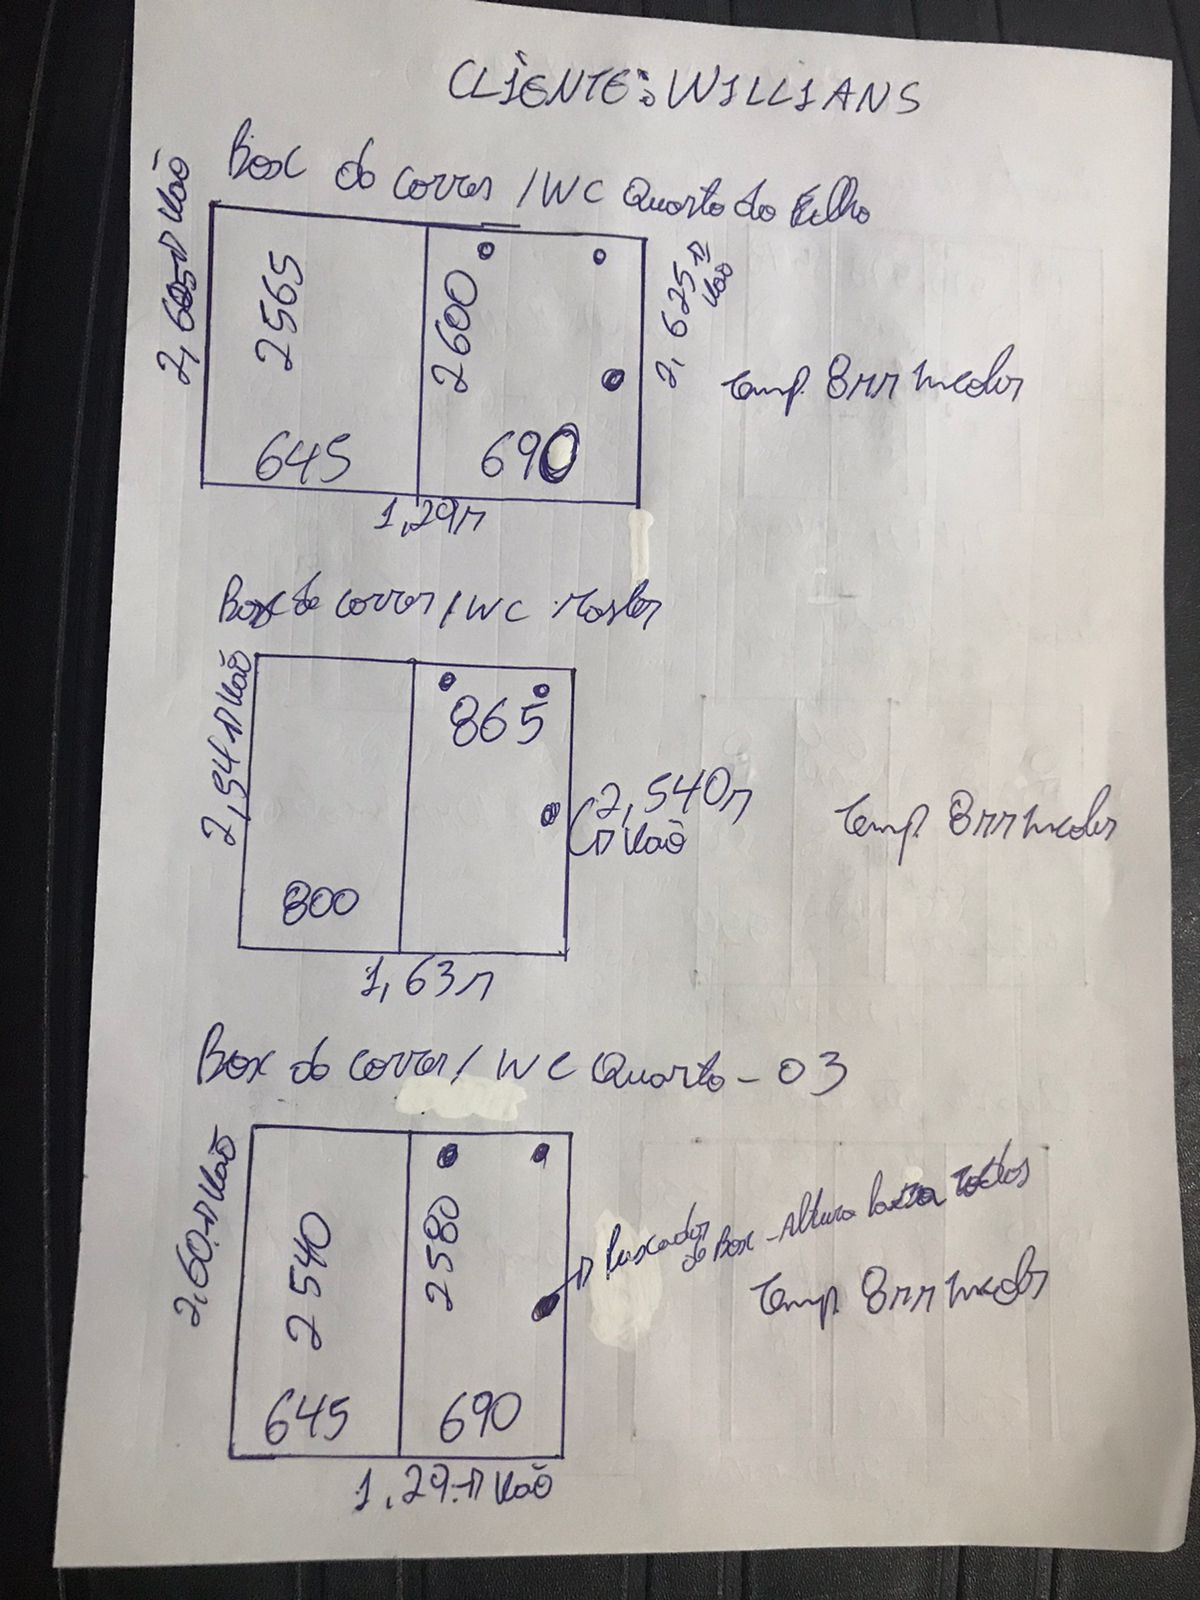 CLIENTE: WILLIANS
Box de correr / WC Quarto do Filho
2,605 Vão
2565
2600
2,625
Vão
645
690
1,29m
Temp. 8mm Incolor
Box de correr / WC Master
2,54 Vão
865
2,540m
Vão
800
1,63m
Temp. 8mm Incolor
Box de correr / WC Quarto - 03
2,60 Vão
2540
2580
645
690
1,29 Vão
Puxador
de Box - Altura para todos
Temp. 8mm Incolor